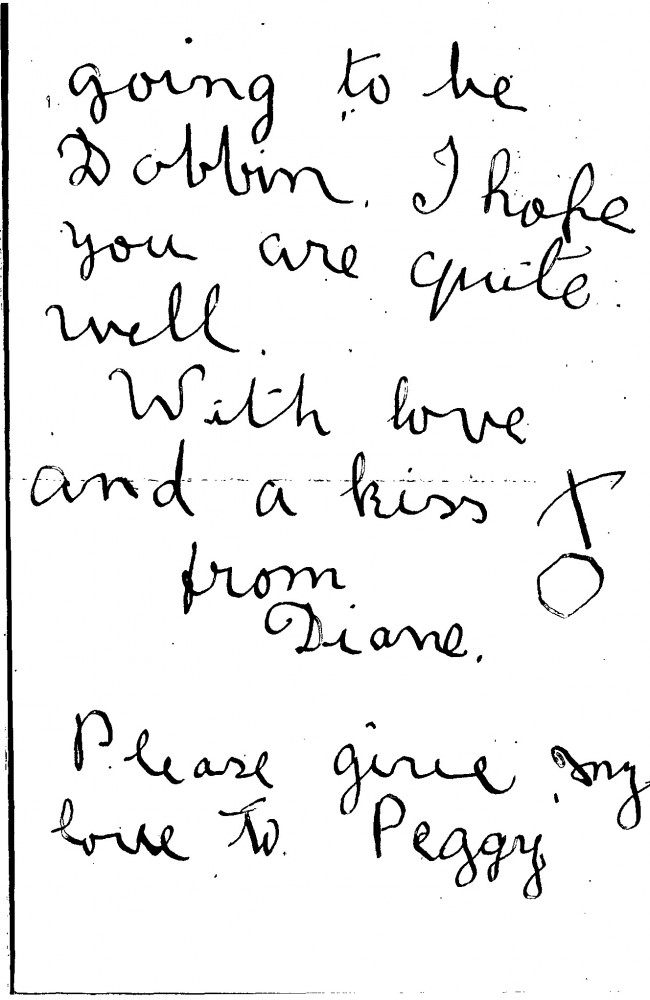 going to be
Dobbin. I hope
you are quite
well.
With love
and a kiss X
O
from
Diane.
Please give my
love to Peggy